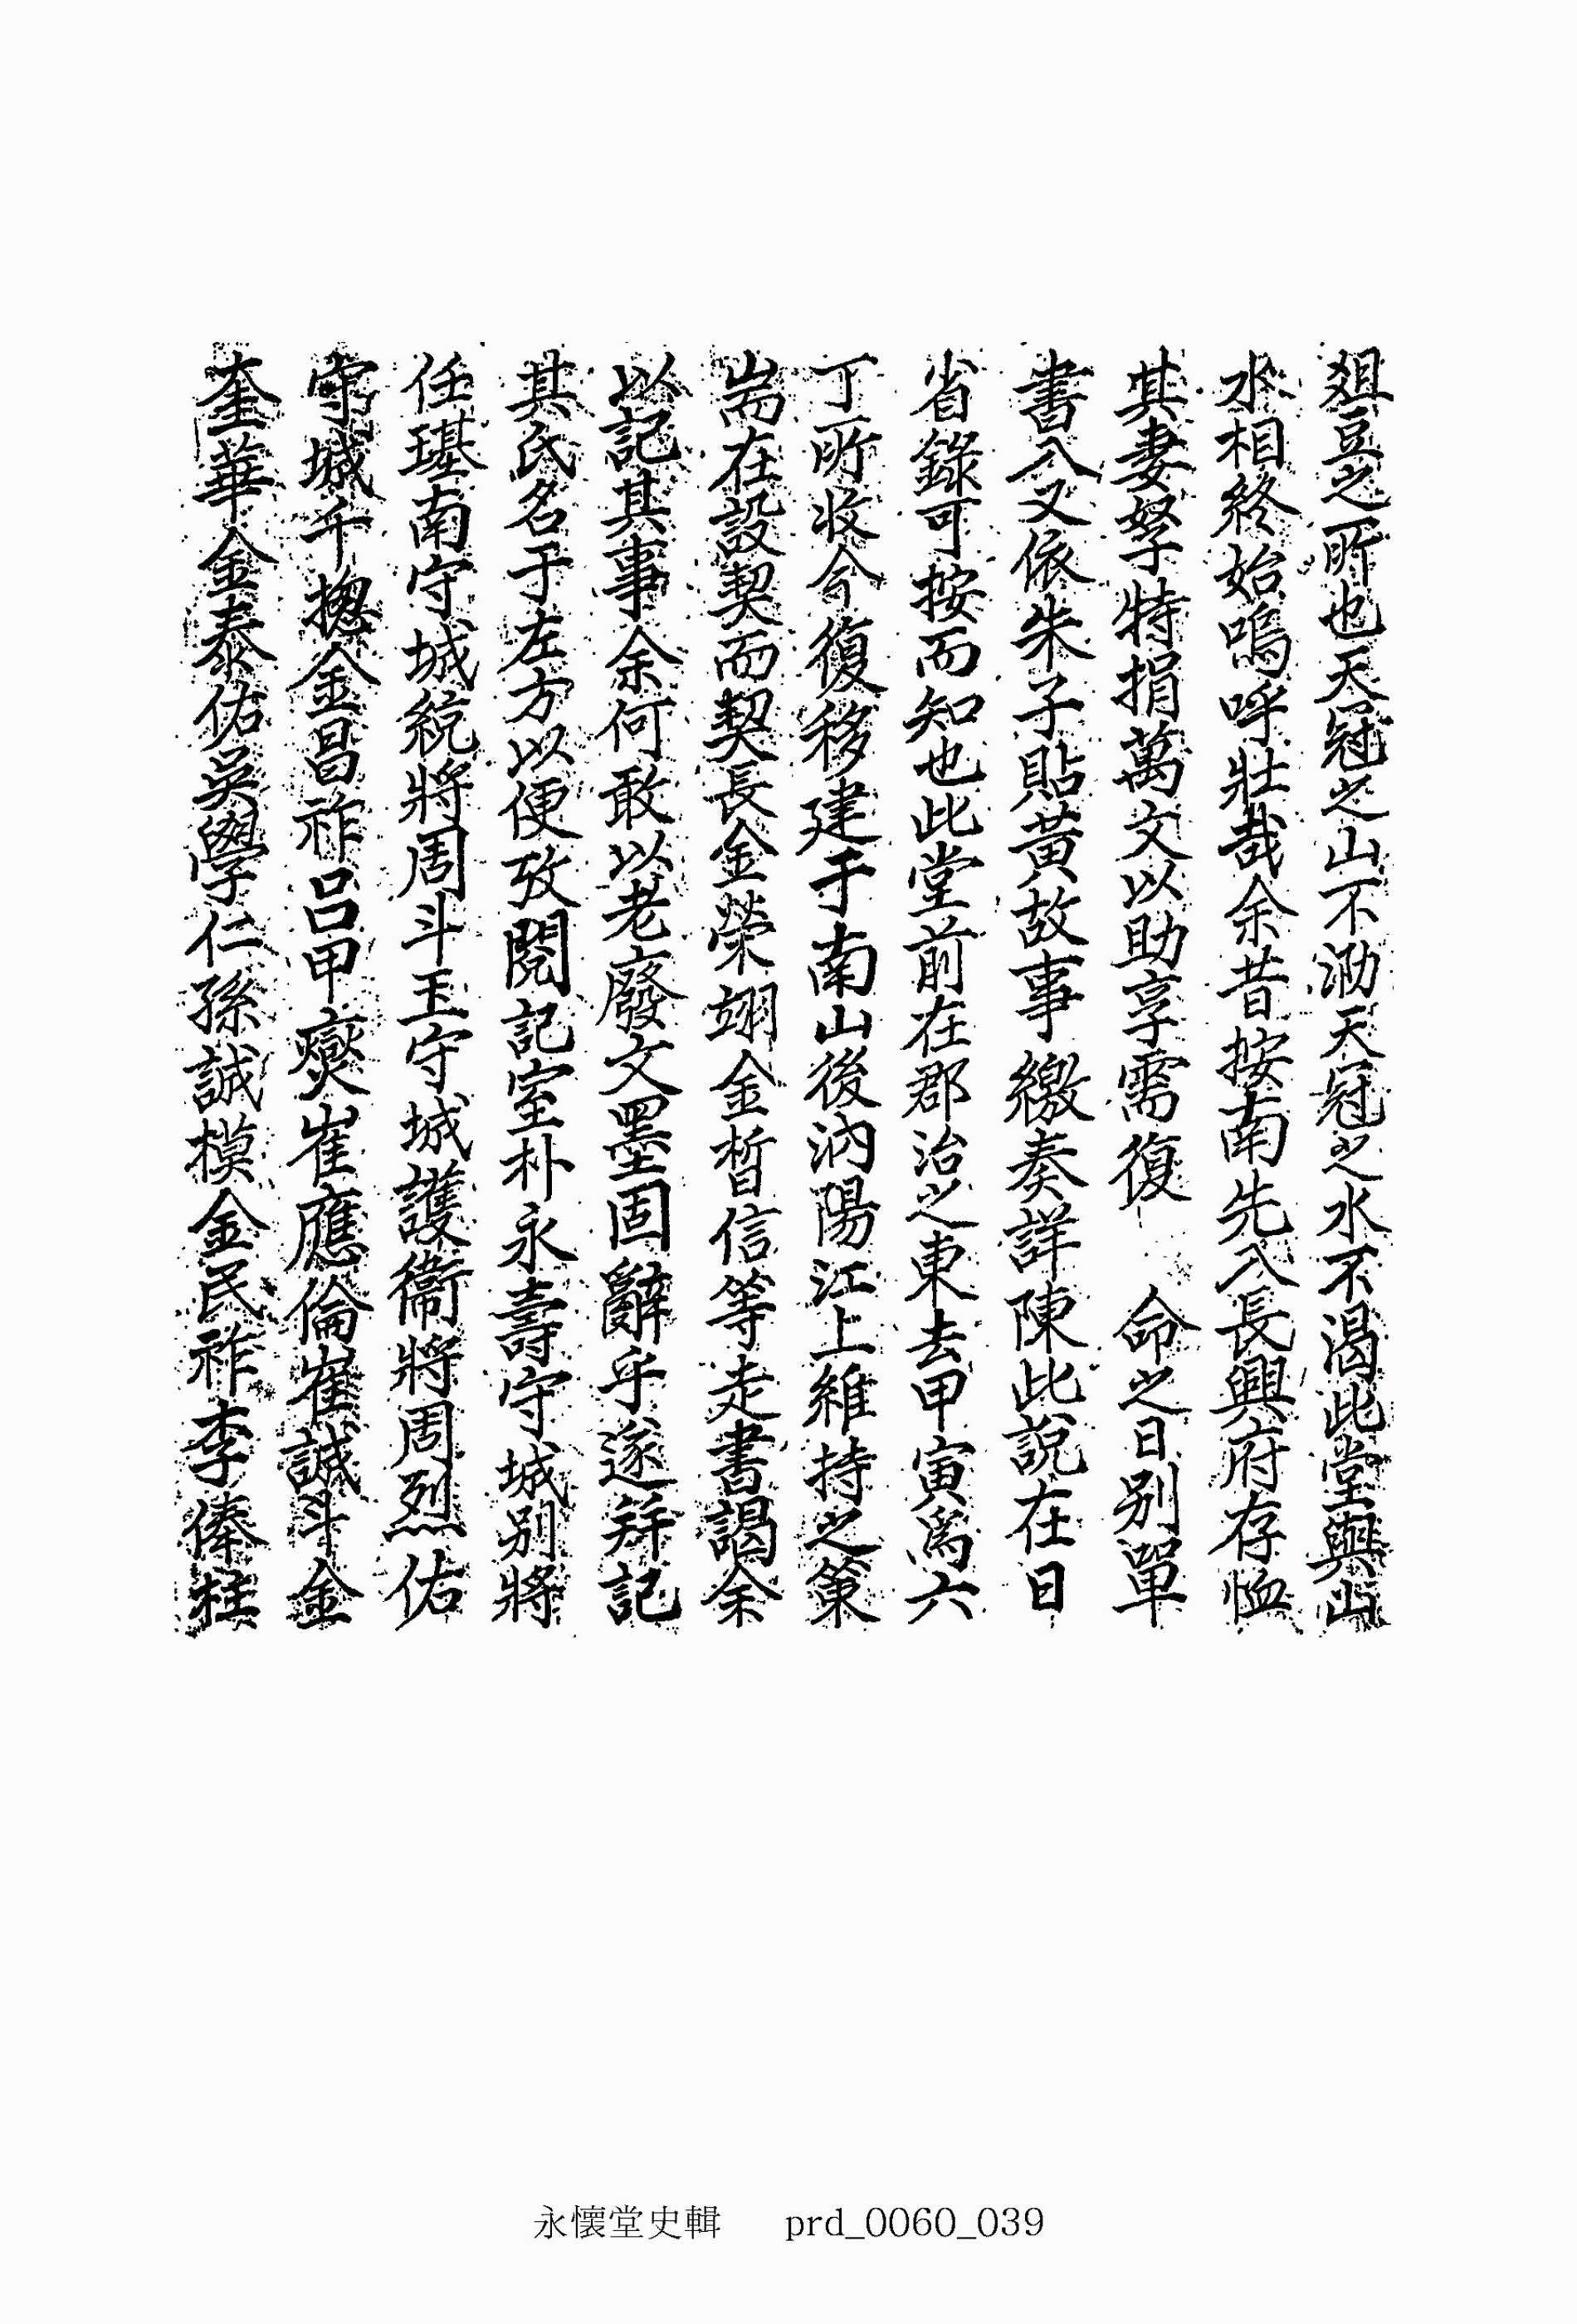 俎豆之所也天冠之山不泐天冠之水不渴此堂與山
水相終始嗚呼壯哉余昔按南先入長興府存恤
其妻孥特捐萬文以助享需復 命之日別單
書入又依朱子貼黃故事繳奏詳陳此說在日
省錄可按而知也此堂前在郡治之東去甲寅爲六
丁所收今復移建于南山後汭陽江上維持之策
耑在設契而契長金榮翊金晳信等走書謁余
以記其事余何敢以老廢文墨固辭乎遂幷記
其氏名于左方以便攷閱記室朴永壽守城別將
任瑾南守城統將周斗玉守城護衞將周烈佑
守城千摠金昌祚呂甲燮崔應倫崔誠斗金
奎華金泰佑吳學仁孫誠模金民祚李俸柱
永懷堂史輯 prd_0060_039